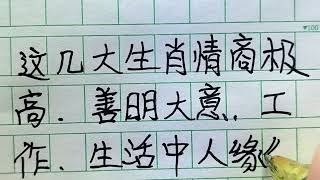 这几大生肖情商极
高.善明大意..工
作.生活中人缘